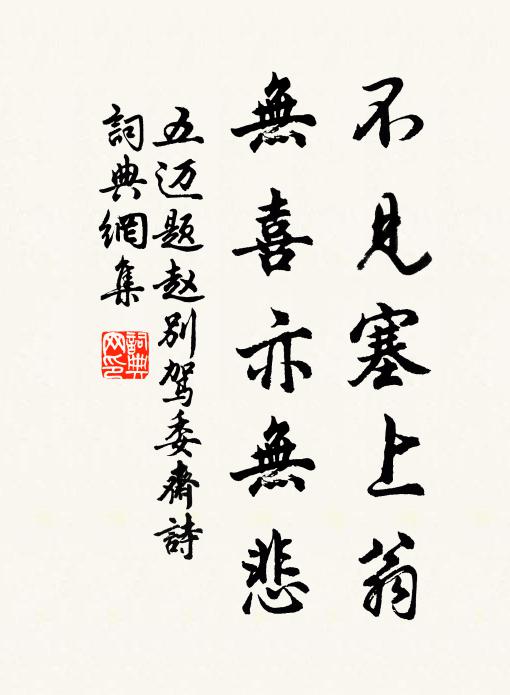 不見塞上翁
無喜亦無悲
五迈题赵別駕委齋詩
詞典網集
詞典网印